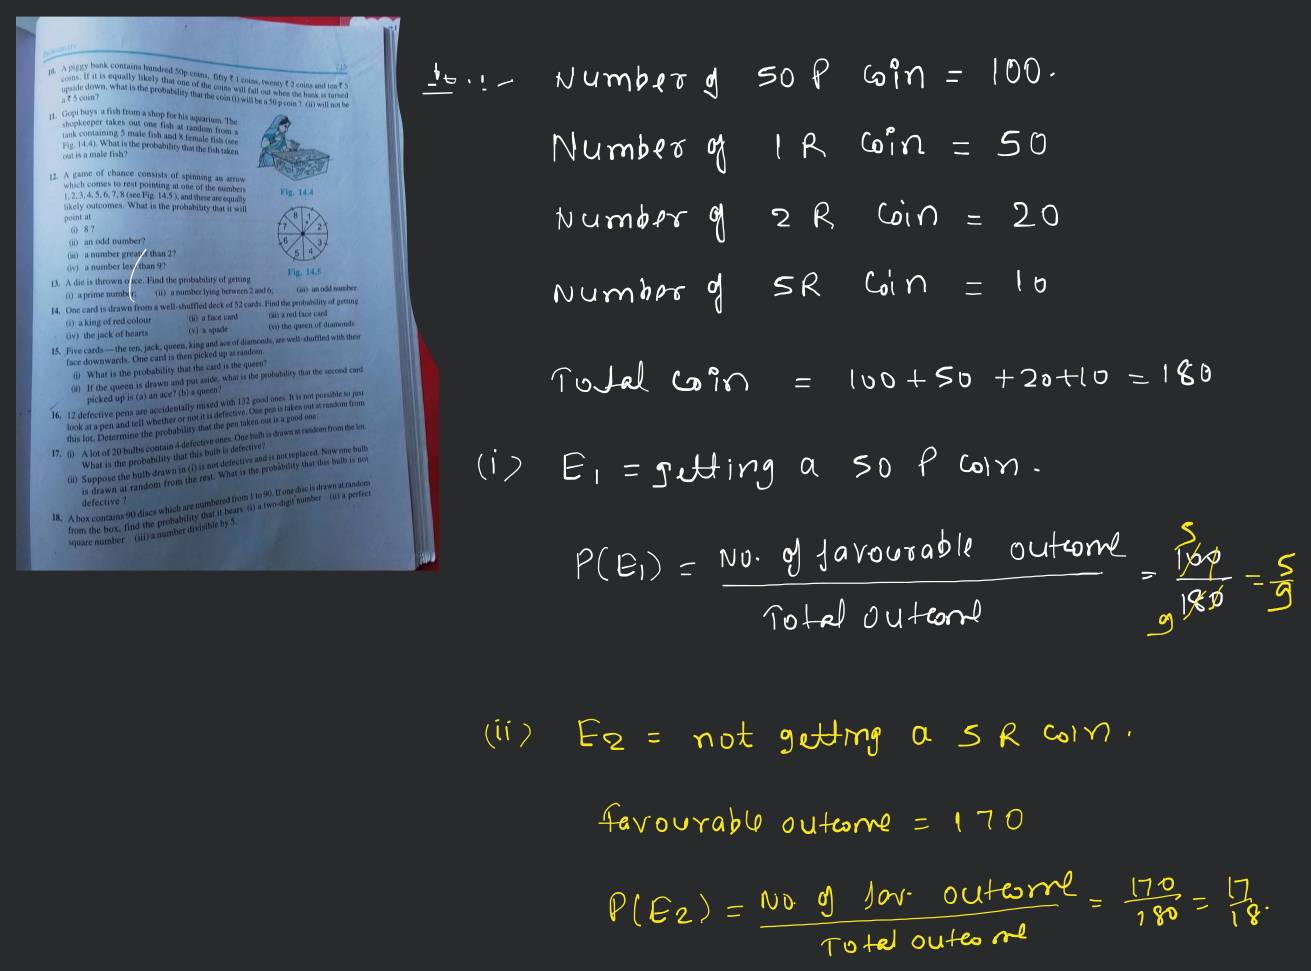 PROBABILITY
10. A piggy bank contains hundred 50p coins, fifty ₹ 1 coins, twenty ₹ 2 coins and ten ₹ 5
coins. If it is equally likely that one of the coins will fall out when the bank is turned
upside down, what is the probability that the coin (i) will be a 50 p coin ? (ii) will not be
a ₹ 5 coin?
11. Gopi buys a fish from a shop for his aquarium. The
shopkeeper takes out one fish at random from a
tank containing 5 male fish and 8 female fish (see
Fig. 14.4). What is the probability that the fish taken
out is a male fish?
Fig. 14.4
12. A game of chance consists of spinning an arrow
which comes to rest pointing at one of the numbers
1, 2, 3, 4, 5, 6, 7, 8 (see Fig. 14.5 ), and these are equally
likely outcomes. What is the probability that it will
point at
(i) 8 ?
(ii) an odd number?
(iii) a number greater than 2?
(iv) a number less than 9?
8 1
7 2
6 3
5 4
Fig. 14.5
13. A die is thrown once. Find the probability of getting
(i) a prime number; (ii) a number lying between 2 and 6; (iii) an odd number.
14. One card is drawn from a well-shuffled deck of 52 cards. Find the probability of getting
(i) a king of red colour (ii) a face card (iii) a red face card
(iv) the jack of hearts (v) a spade (vi) the queen of diamonds
15. Five cards—the ten, jack, queen, king and ace of diamonds, are well-shuffled with their
face downwards. One card is then picked up at random.
(i) What is the probability that the card is the queen?
(ii) If the queen is drawn and put aside, what is the probability that the second card
picked up is (a) an ace? (b) a queen?
16. 12 defective pens are accidentally mixed with 132 good ones. It is not possible to just
look at a pen and tell whether or not it is defective. One pen is taken out at random from
this lot. Determine the probability that the pen taken out is a good one.
17. (i) A lot of 20 bulbs contain 4 defective ones. One bulb is drawn at random from the lot.
What is the probability that this bulb is defective?
(ii) Suppose the bulb drawn in (i) is not defective and is not replaced. Now one bulb
is drawn at random from the rest. What is the probability that this bulb is not
defective ?
18. A box contains 90 discs which are numbered from 1 to 90. If one disc is drawn at random
from the box, find the probability that it bears (i) a two-digit number (ii) a perfect
square number (iii) a number divisible by 5.
10 :- Number of 50 P Coin = 100.
Number of 1 R Coin = 50
Number of 2 R Coin = 20
Number of 5R Coin = 10
Total coin = 100 + 50 + 20 + 10 = 180
(i) E1 = getting a 50 P coin.
P(E1) = No. of favourable outcome / Total outcome = 100/180 = 5/9
(ii) E2 = not getting a 5 R coin.
favourable outcome = 170
P(E2) = No. of fav. outcome / Total outcome = 170/180 = 17/18.